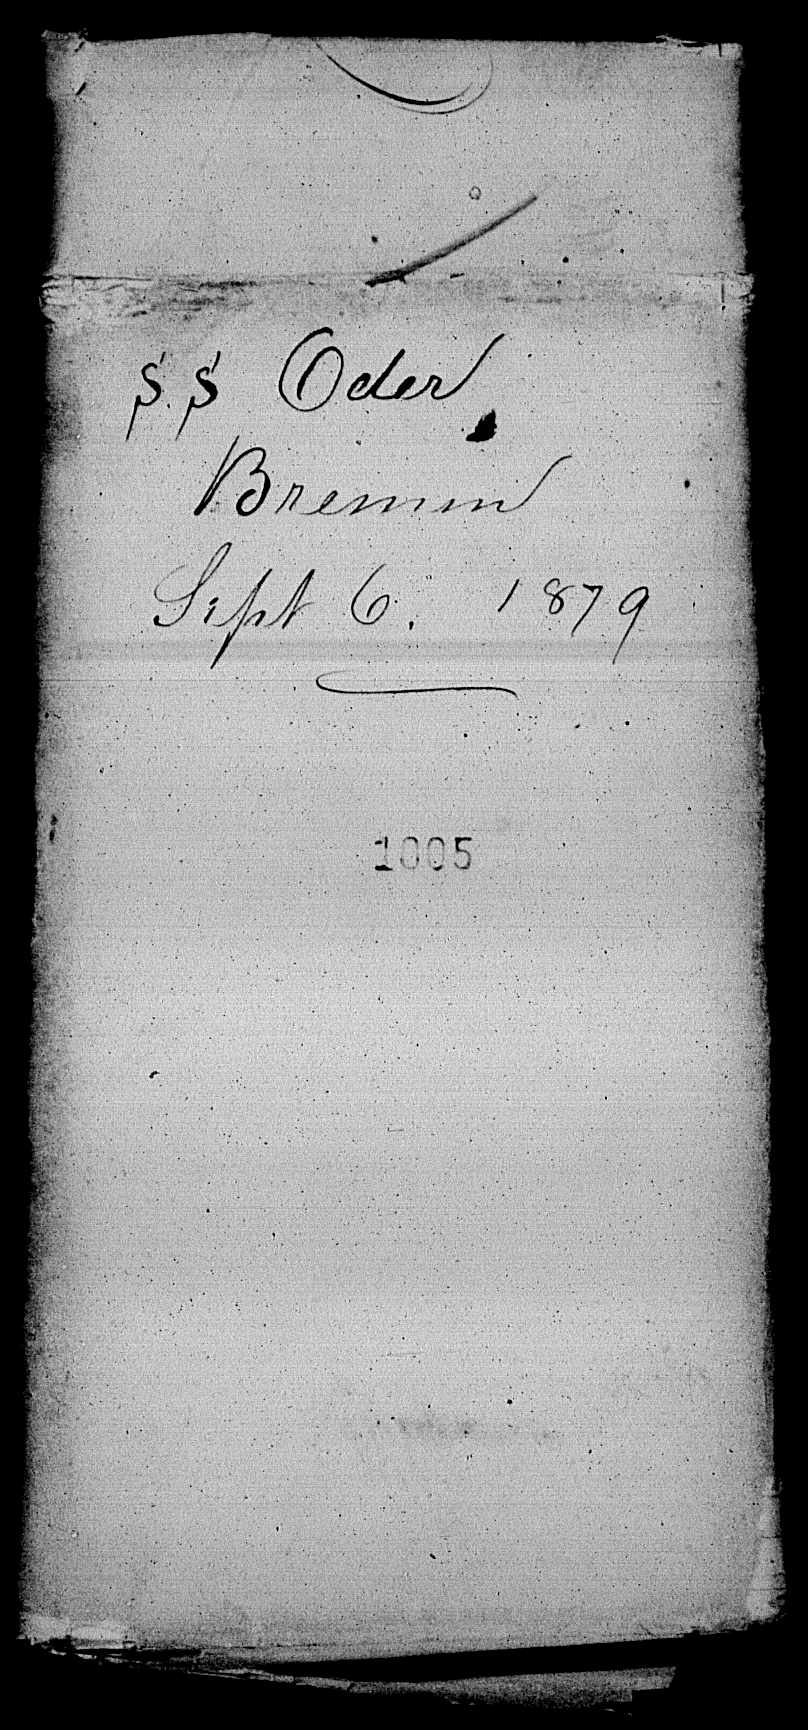 S.S Oder
Bremen
Sept 6. 1879
1005